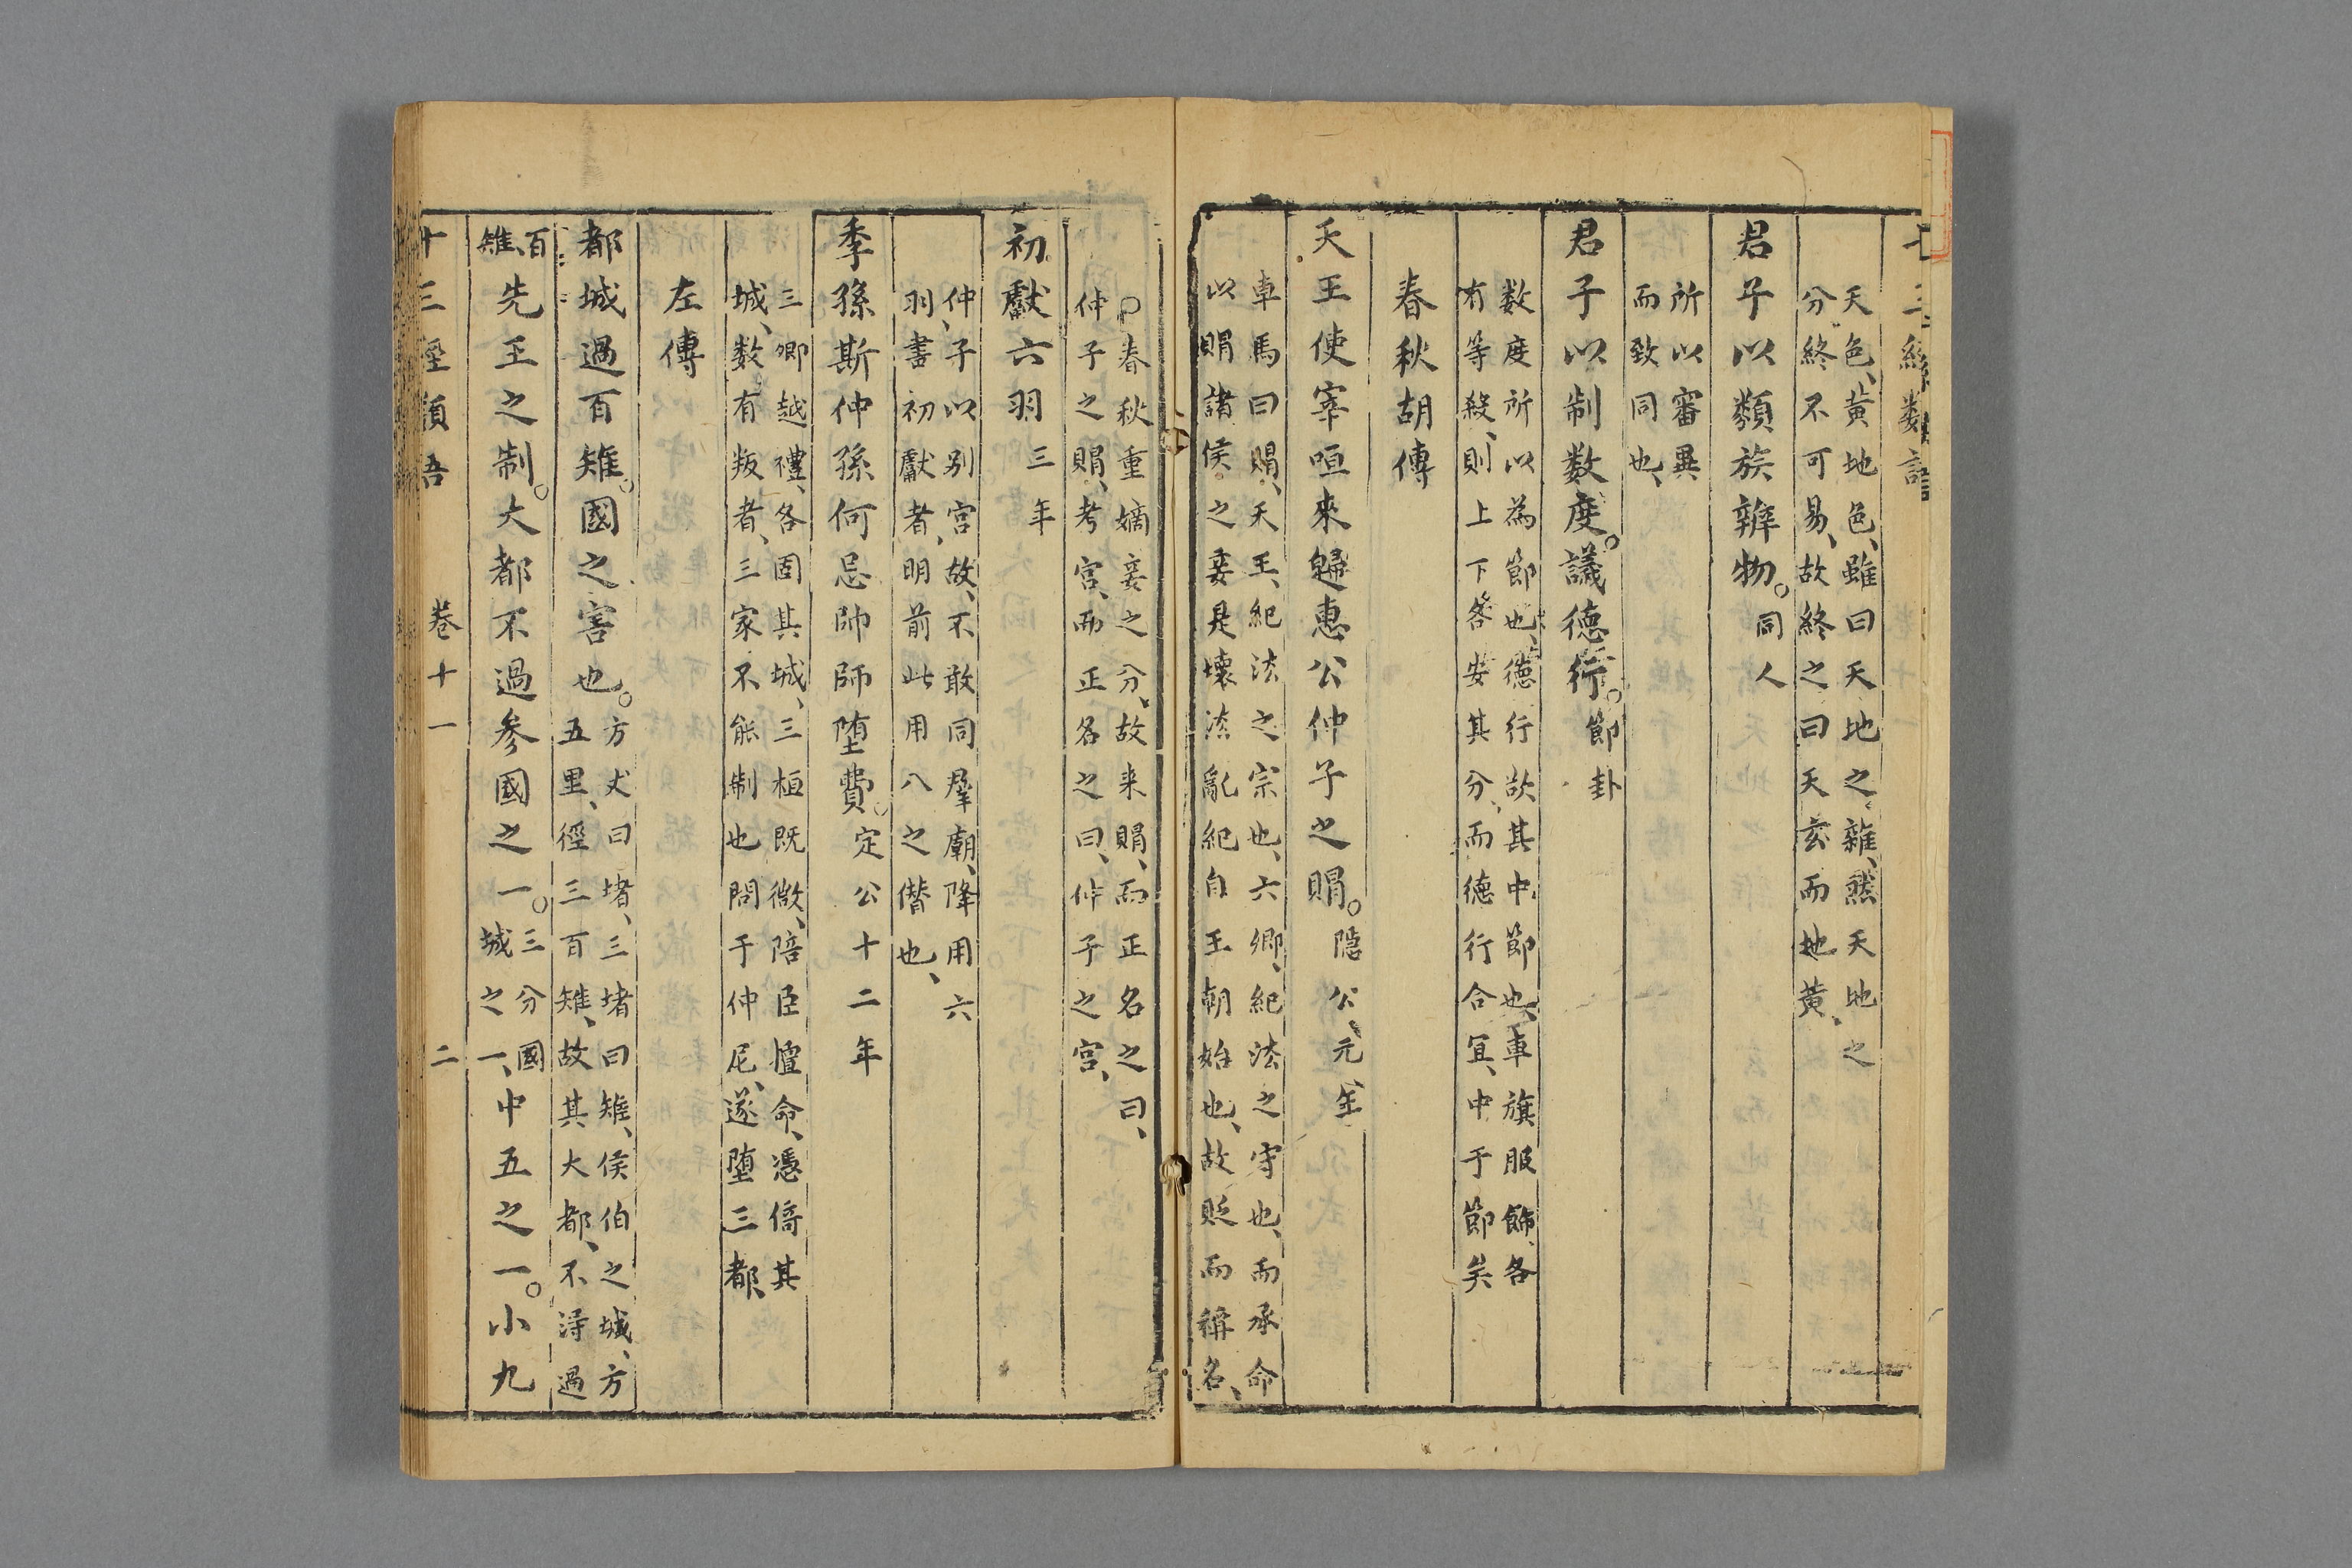 天色、黃地色、雖曰天地之雜、然天地之
分終不可易、故終之曰天玄而地黃、
君子以類族辨物。同人
所以審異
而致同也、
君子以制数度。議德行。節卦
数度所以為節也、德行欲其中節也、車旗服飾、各
有等殺、則上下各安其分、而德行合宜、中于節矣
春秋胡傳
天王使宰咺來歸惠公仲子之賵。隱公元年
車馬曰賵、天王、紀法之宗也、六卿、紀法之守也、而承命
以賵諸侯之妾是壞法亂紀自王朝始也、故貶而稱名、
○春秋重嫡妾之分、故来賵、而正名之曰、
仲子之賵、考宮、而正名之曰、仲子之宮、
初獻六羽三年
仲子以别宮故、不敢同羣廟、降用六
羽、書初獻者、明前此用八之僭也、
季孫斯仲孫何忌帥師堕費。定公十二年
三卿越禮、各固其城、三桓既微、陪臣擅命、憑倚其
城、数有叛者、三家不能制也問于仲尼、遂堕三都、
左傳
都城過百雉。國之害也。
方丈曰堵、三堵曰雉、侯伯之城、方
五里、徑三百雉、故其大都、不得過
百
雉、
先王之制。大都不過参國之一。
三分國
城之一、
中五之一。小九
十三經類語 卷十一 二